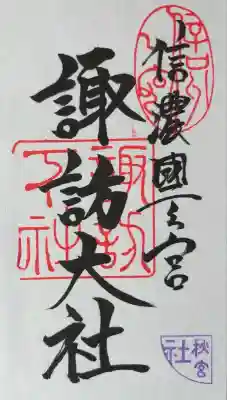 信濃國一之宮
諏訪大社
諏訪
下社
秋宮
社